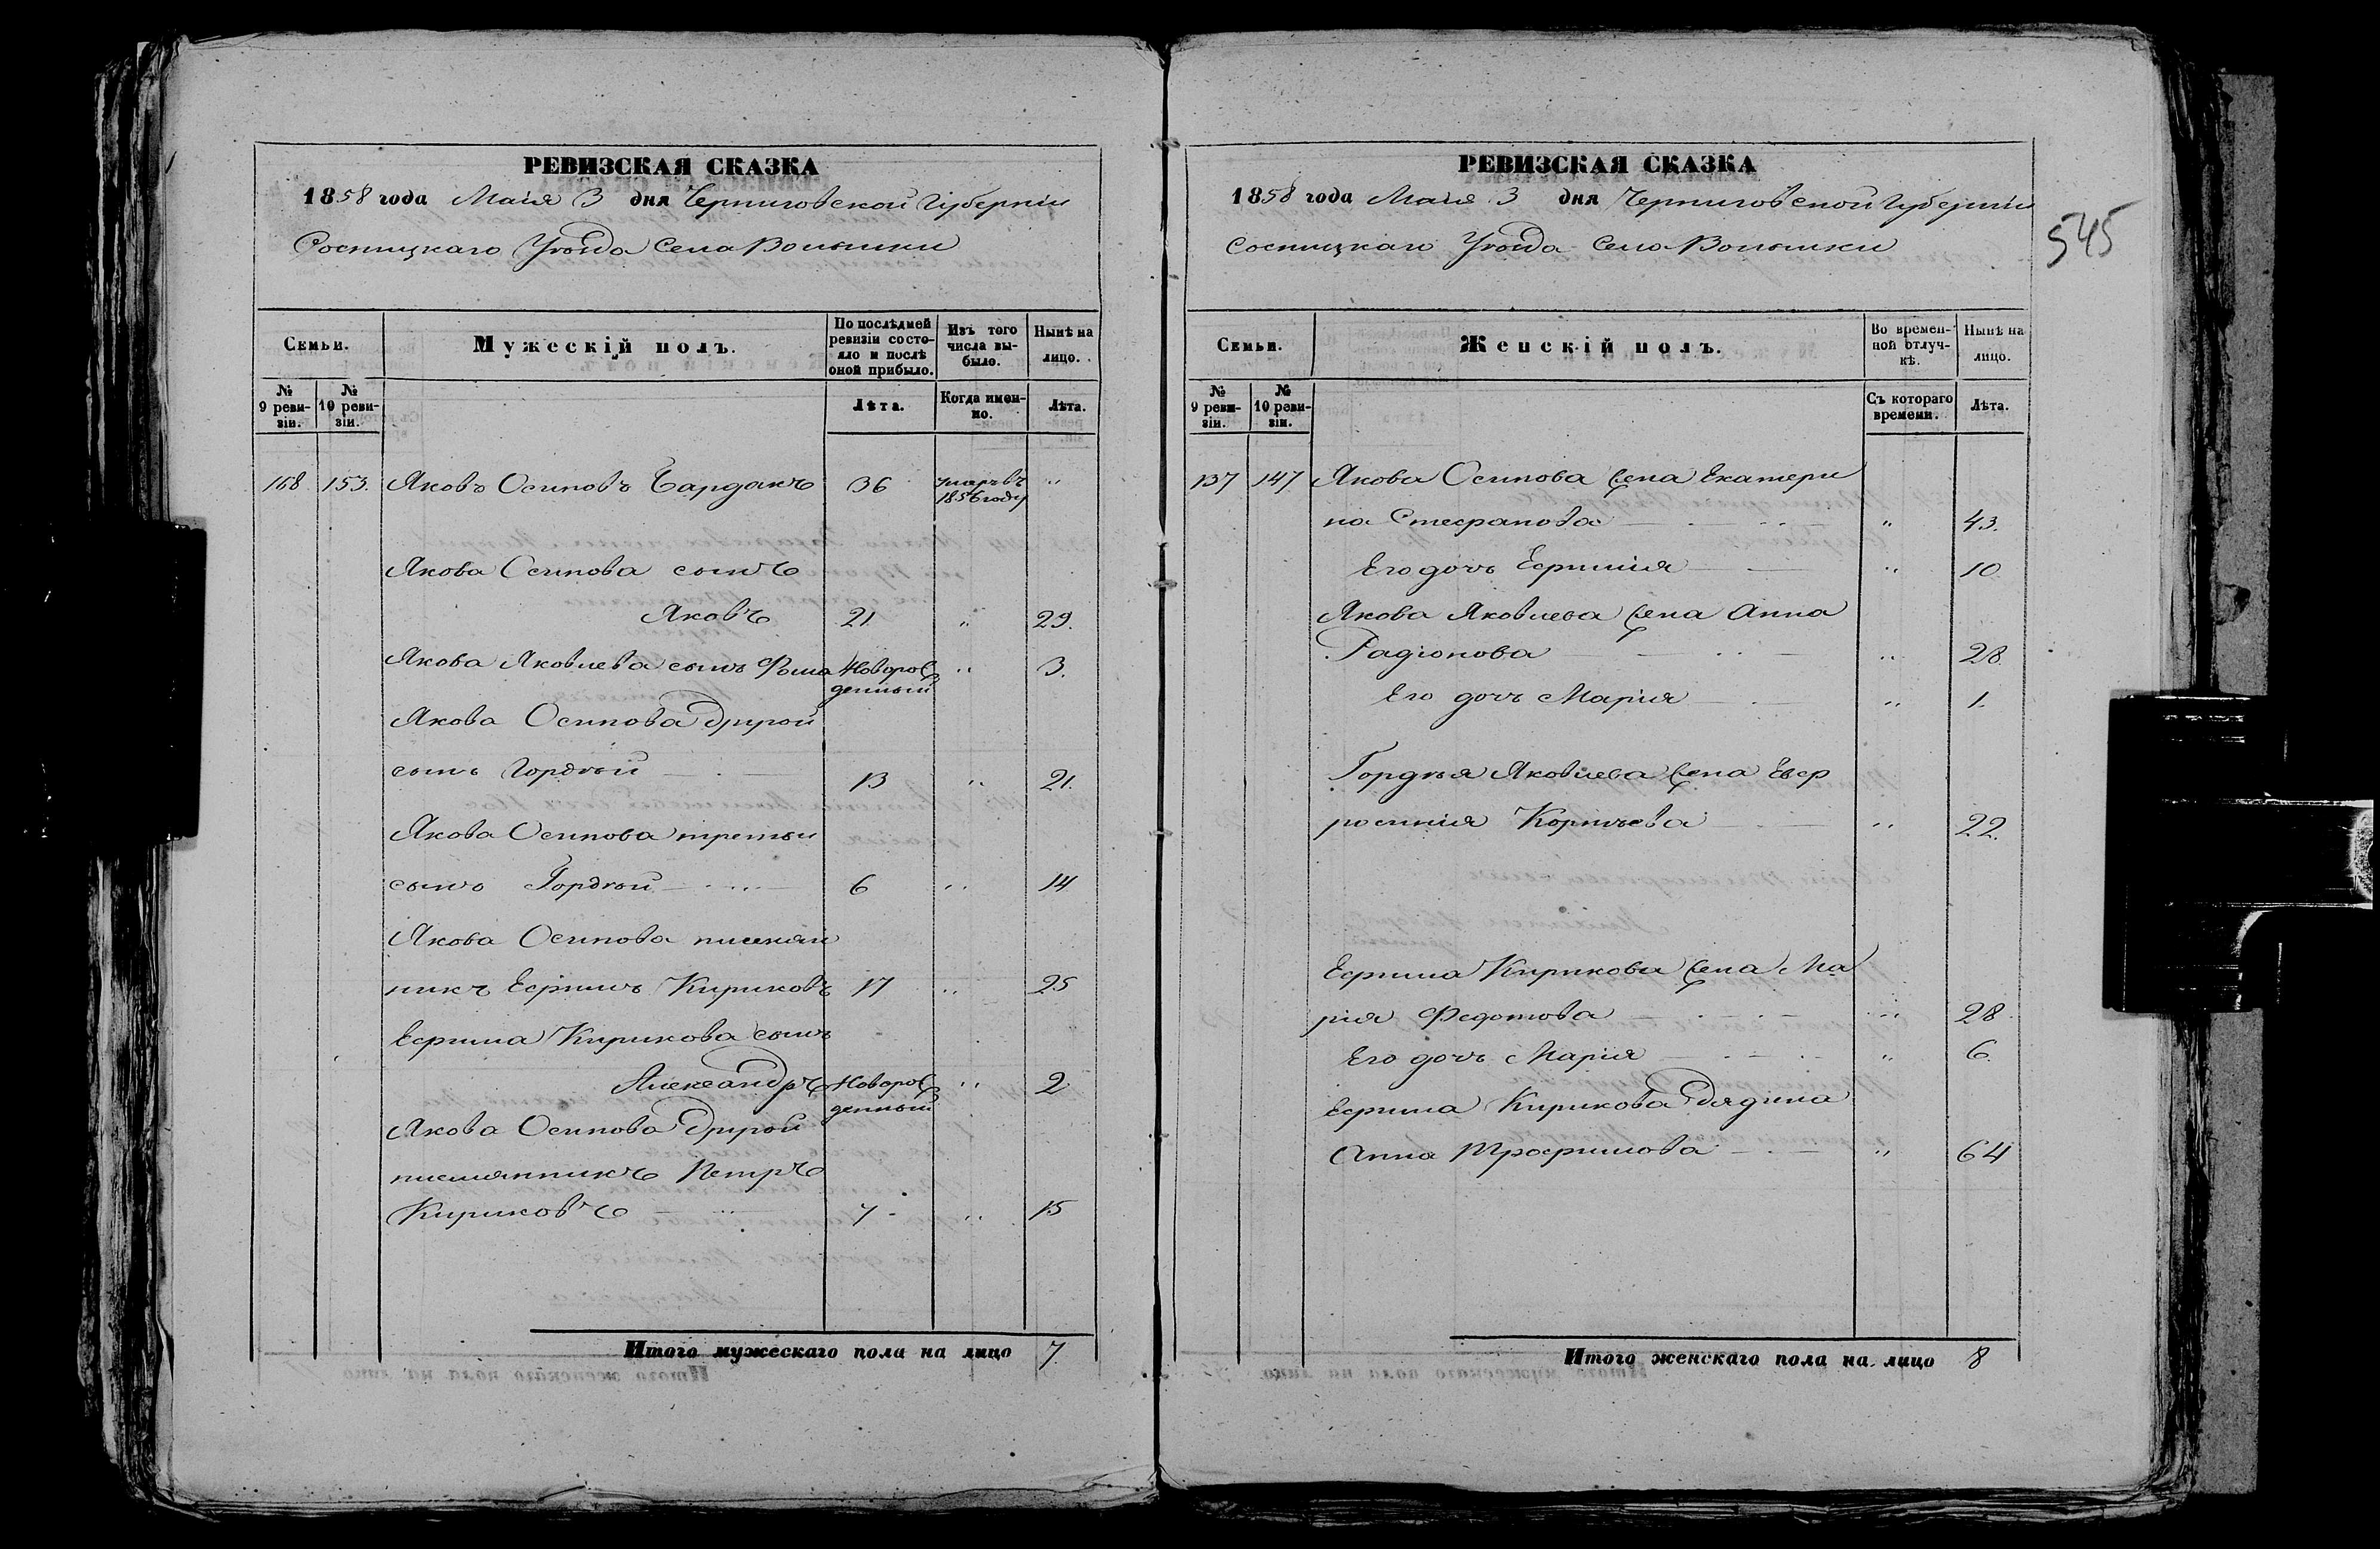 РЕВИЗСКАЯ СКАЗКА
1858 года Маія 3 дня Черниговской Губерніи
Сосницкаго Уѣзда Села Волынки
Семьи.
Мужескій полъ.
По послѣдней ревизіи состояло и послѣ оной прибыло.
Изъ того числа выбыло.
Нынѣ на лицо.
№ 9 ревизіи.
№ 10 ревизіи.
Лѣта.
Когда именно.
Лѣта.
168 153. Яковъ Осиповъ Бардакъ 36 умеръ въ 1856 году "
Якова Осипова сынъ
Яковъ 21 " 29.
Якова Яковлева сынъ Фома Новорож денный " 3.
Якова Осипова другой
сынъ Гордѣй 13 " 21.
Якова Осипова третьи
сынъ Гордѣй 6 " 14
Якова Осипова племян
никъ Ефримъ Кириковъ 17 " 25
Ефрима Кирикова сынъ
Александръ Новорож денный " 2
Якова Осипова другой
племянникъ Петръ
Кириковъ 7 " 15
Итого мужескаго пола на лицо 7.
РЕВИЗСКАЯ СКАЗКА
1858 года Маія 3 дня Черниговской Губерніи
Сосницкаго Уѣзда Села Волынки
545
Семьи.
Женскій полъ.
Во временной отлучкѣ.
Нынѣ на лицо.
№ 9 ревизіи.
№ 10 ревизіи.
Съ котораго времени.
Лѣта.
137 147 Якова Осипова жена Екатери
на Стефанова " 43.
Его дочь Ефимія " 10
Якова Яковлева жена Анна
Радіонова " 28.
Его дочь Марія " 1.
Гордѣя Яковлева жена Евф
росинія Корнѣева " 22.
Ефрима Кирикова жена Ма
рія Федотова " 28
Его дочь Марія " 6.
Ефрима Кирикова дядина
Анна Трофимова " 64
Итого женскаго пола на лицо 8